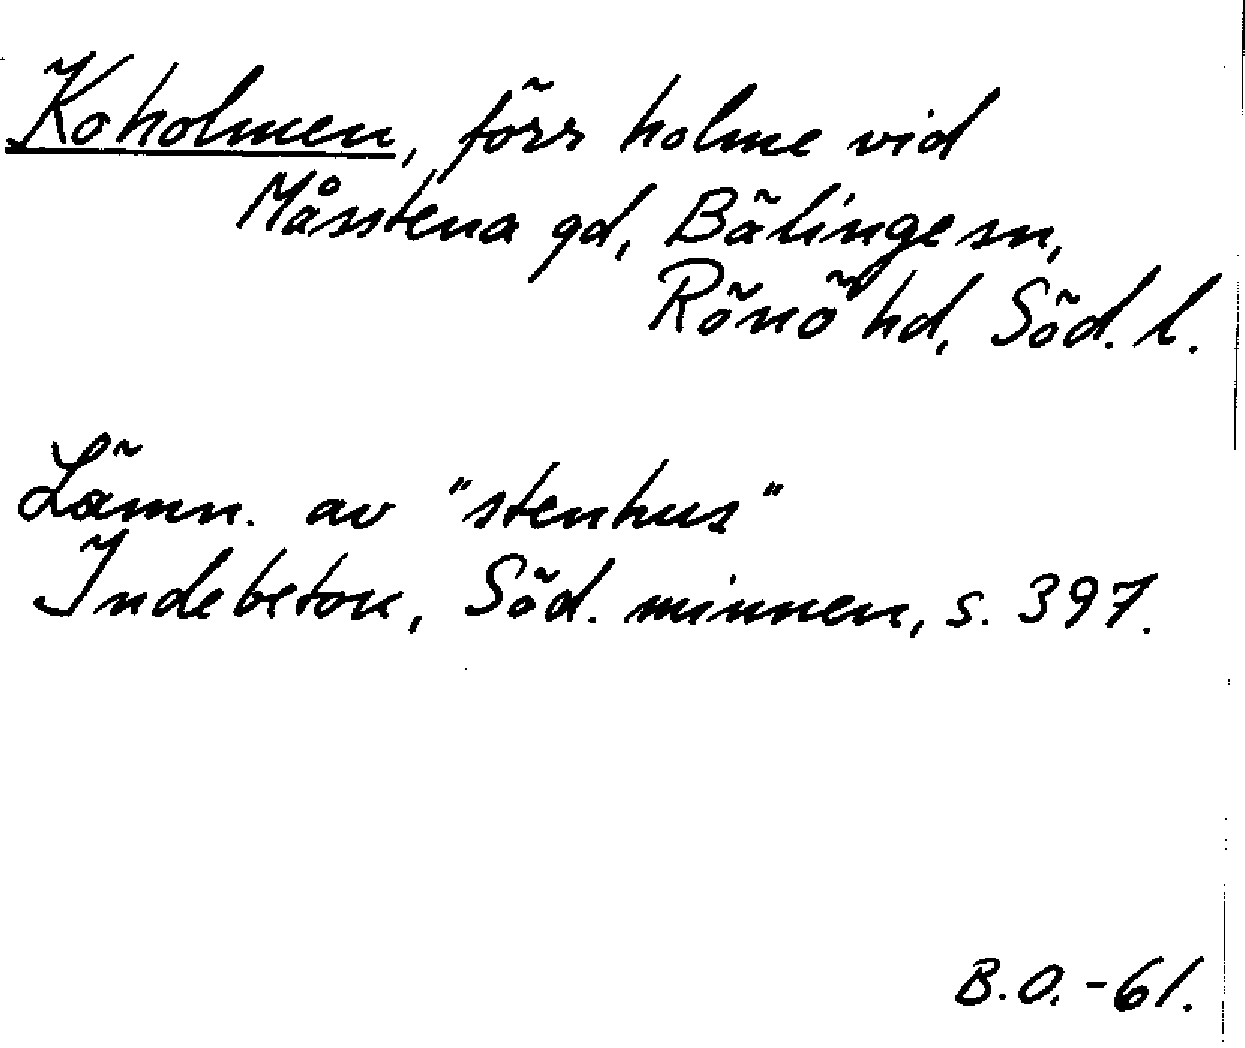 Koholmen, förr holme vid
Måsstena gd, Bälinge sn,
Rönö hd, Söd. l.
Lämn. av "stenhus"
Indebetou, Söd. minnen, s. 397.
B.O. -61.